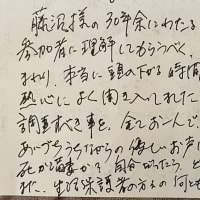 藤沢様の30年余にわたる
参加者に理解してもらうべく
まわり、本当に頭の下がる時間
熱心によく聞き入れした
調査すべき事を、全てお一人で、
あいさつうちながらの優しいお声に
死が 自分だったら、と
れた、生活保護者の方の何とも